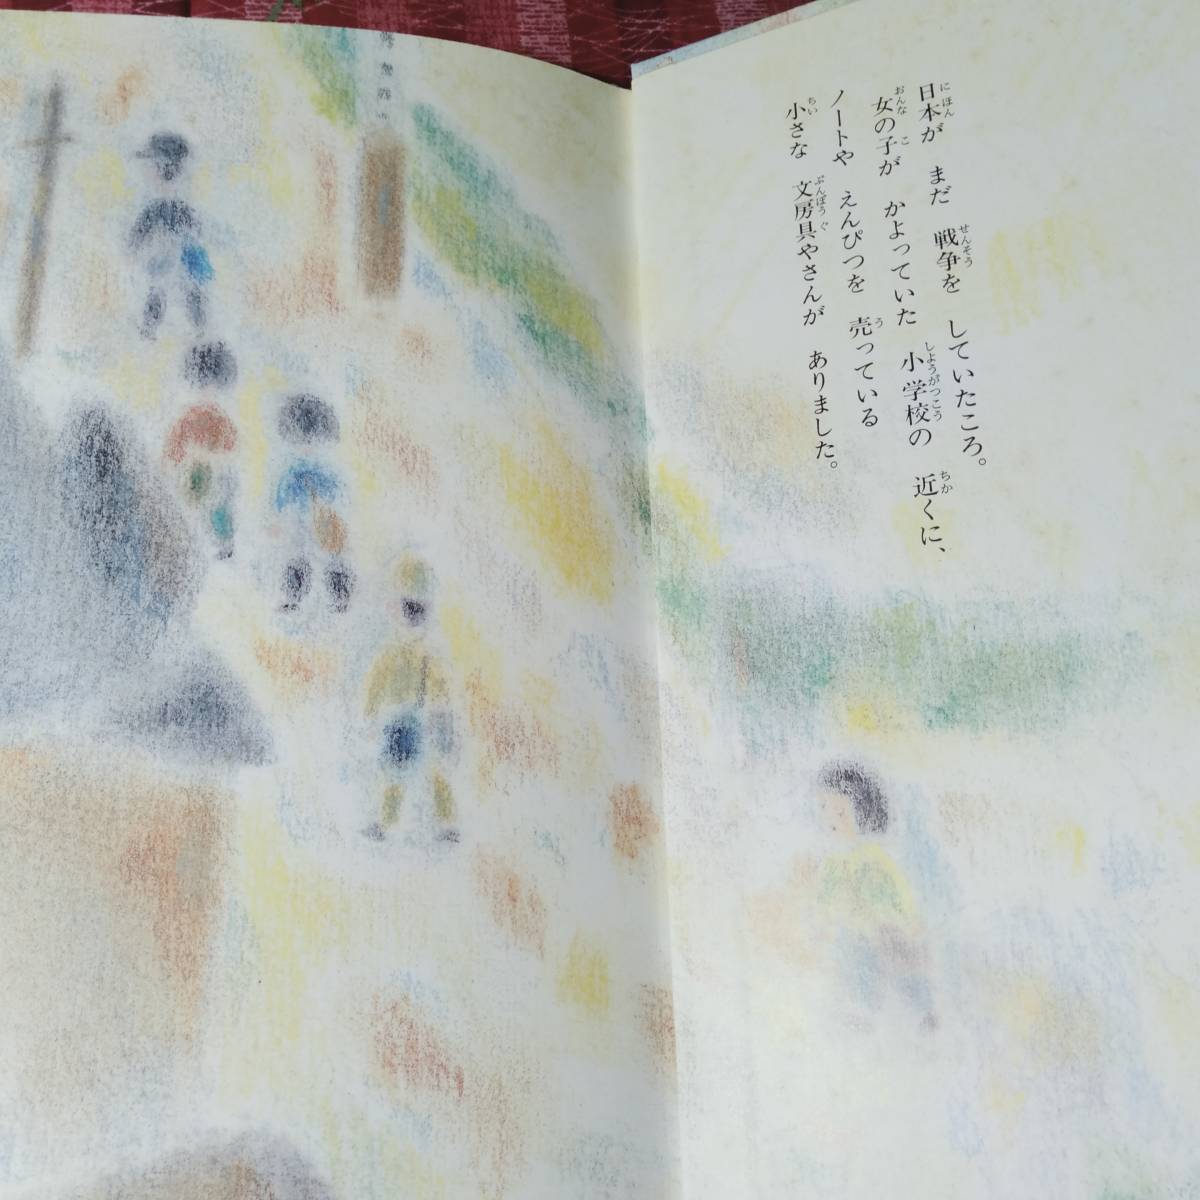 日本が　まだ　戦争を　していたころ。
女の子が　かよっていた　小学校の　近くに、
ノートや　えんぴつを　売っている
小さな　文房具やさんが　ありました。